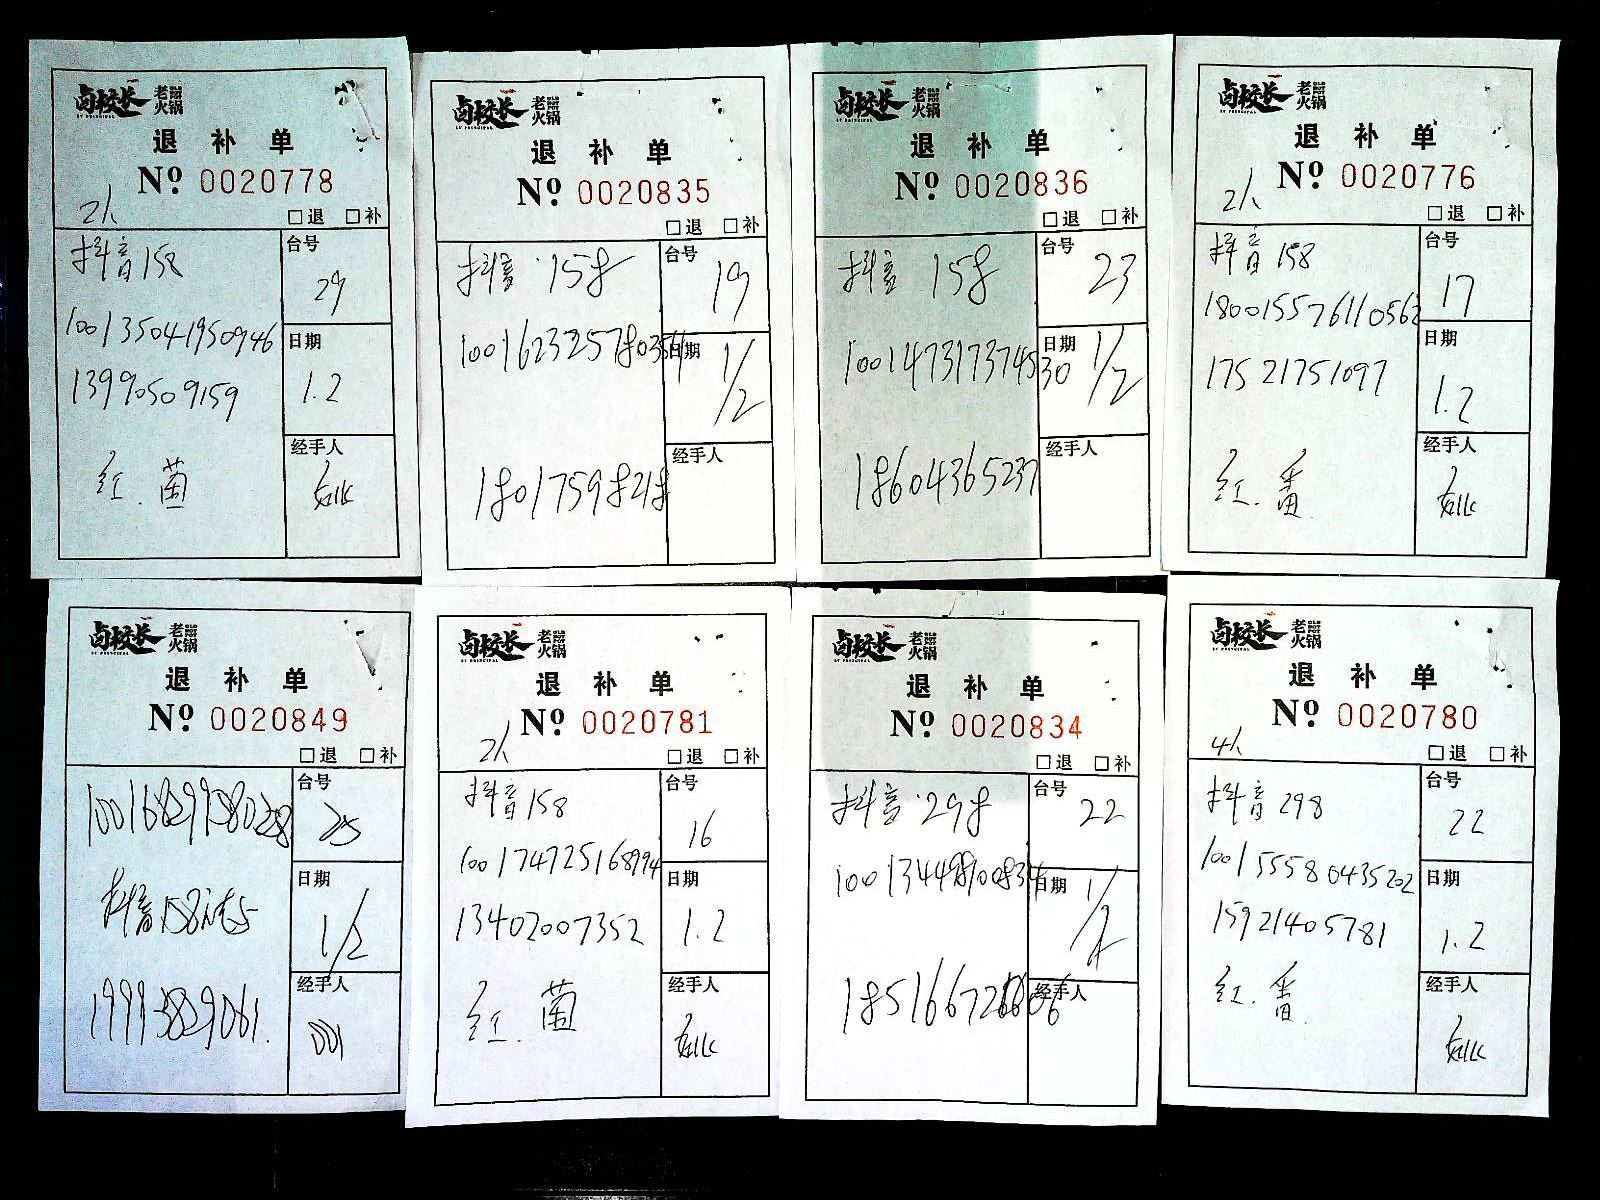 卤校长 老火锅
LU PRINCIPAL
退补单
Nº 0020778
2人
□退 □补
抖音158
1001350419509946
13990509159
红.菌
台号
29
日期
1.2
经手人
卤校长 老火锅
LU PRINCIPAL
退补单
Nº 0020835
□退 □补
抖音·158
1001623257803564
18017598218
台号
19
日期
1/2
经手人
卤校长 老火锅
LU PRINCIPAL
退补单
Nº 0020836
□退 □补
抖音 158
100147317374530
18604365237
台号
23
日期
1/2
经手人
卤校长 老火锅
LU PRINCIPAL
退补单
Nº 0020776
2人
□退 □补
抖音158
180015576110562
17521751097
红.番
台号
17
日期
1.2
经手人
卤校长 老火锅
LU PRINCIPAL
退补单
Nº 0020849
□退 □补
100168299380238
抖音158
19993829061.
台号
25
日期
1/2
经手人
001
卤校长 老火锅
LU PRINCIPAL
退补单
Nº 0020781
2人
□退 □补
抖音158
100174725168994
13402007352
红.菌
台号
16
日期
1.2
经手人
卤校长 老火锅
LU PRINCIPAL
退补单
Nº 0020834
□退 □补
抖音·298
台号
22
日期
经手人
卤校长 老火锅
LU PRINCIPAL
退补单
Nº 0020780
4人
□退 □补
抖音298
100155580435202
15921405781
红.番
台号
22
日期
1.2
经手人